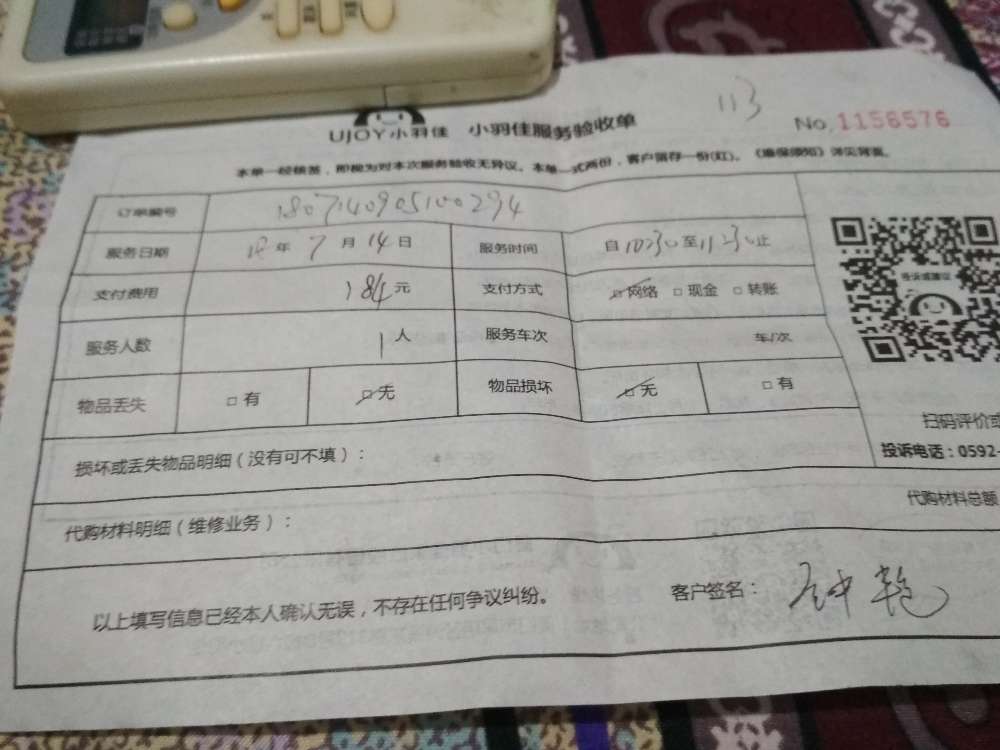 113
UJOY小羽佳 小羽佳服务验收单 No.1156576
本单一经核签，即视为对本次服务验收无异议。本单一式两份，客户留存一份(红)。《维保须知》详见背面。
订单编号 1807140905100294
服务日期 18年7月14日 服务时间 自1030至1130止
支付费用 184元 支付方式 □网络 □现金 □转账
服务人数 1人 服务车次 车/次
物品丢失 □有 □无 物品损坏 □无 □有
投诉或建议
扫码评价或
投诉电话：0592-
损坏或丢失物品明细（没有可不填）：
代购材料明细（维修业务）： 代购材料总额
以上填写信息已经本人确认无误，不存在任何争议纠纷。 客户签名：